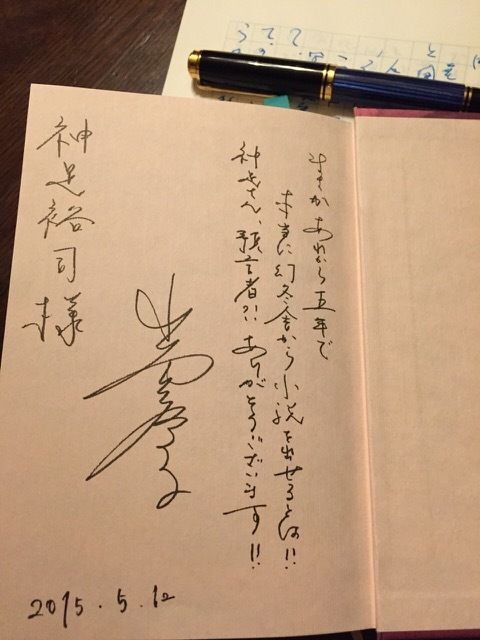 まさかあれから五年で
本当に幻冬舎から小説を出せるとは!!
神足さん、預言者?! ありがとうございます!!
神足裕司様
2015.5.12